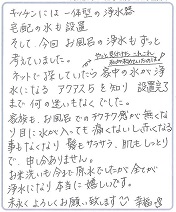 キッチンには一体型の浄水器
宅配の水も設置
そして、今回お風呂の浄水もずっと
考えていました。
ネットで探していたら家中の水が浄
水になるアクアス5を知り設置完了
まで何の迷いもなくでした。
家族も、お風呂でのチクチク感が無くな
り目に水が入っても痛くないし赤くなる
事もなくなり髪もサラサラ、肌もしっとり
で、申し分ありません。
お米洗いも今まで原水でしたが全てが
浄水になり本当に嬉しいです。
末永くよろしくお願い致します😊 幸福